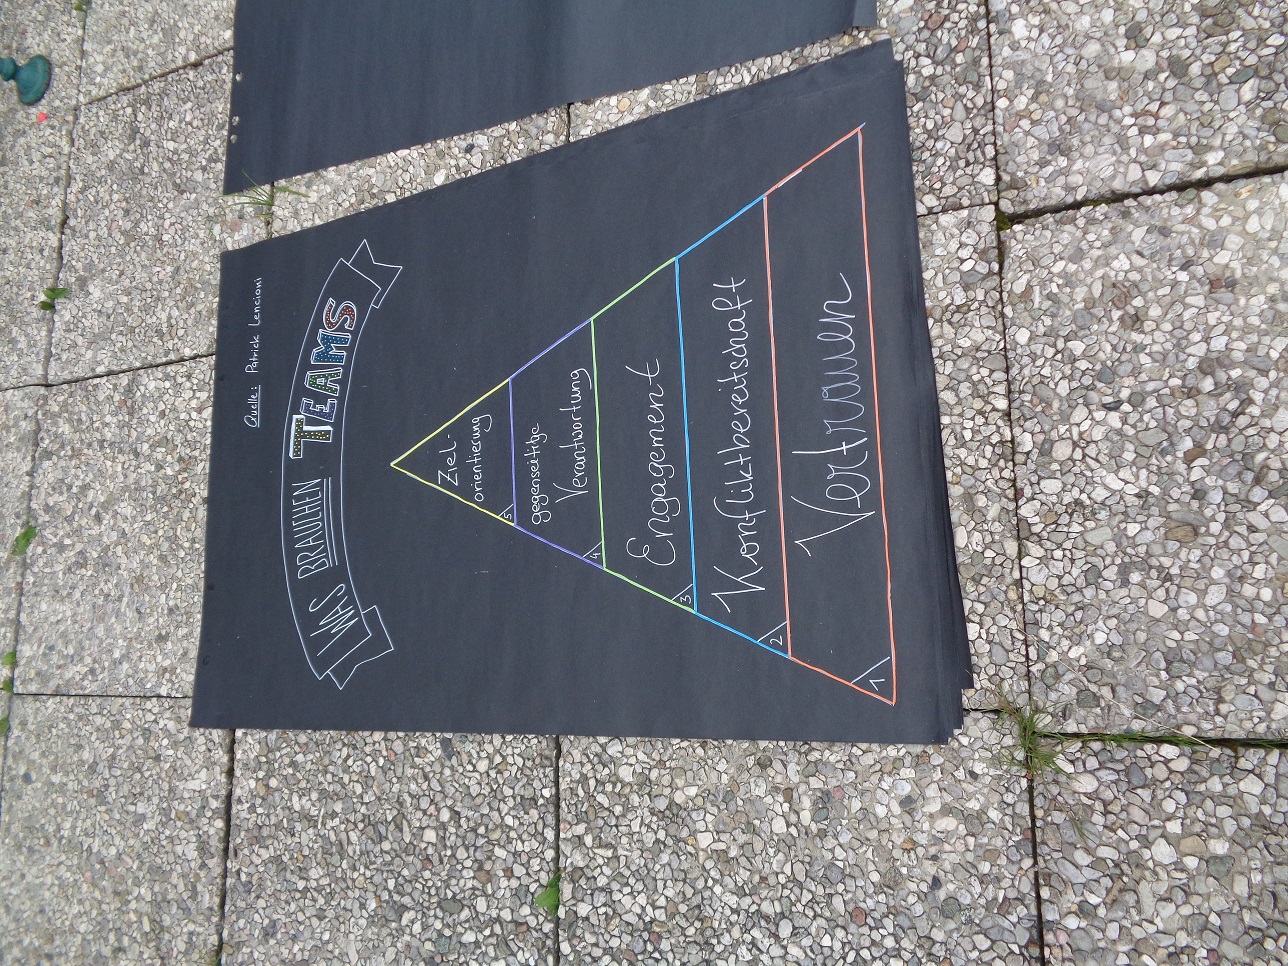 Quelle: Patrick Lencioni
WAS BRAUCHEN TEAMS
Ziel-
orientierung
5
gegenseitige
Verantwortung
4
Engagement
3
Konfliktbereitschaft
2
Vertrauen
1